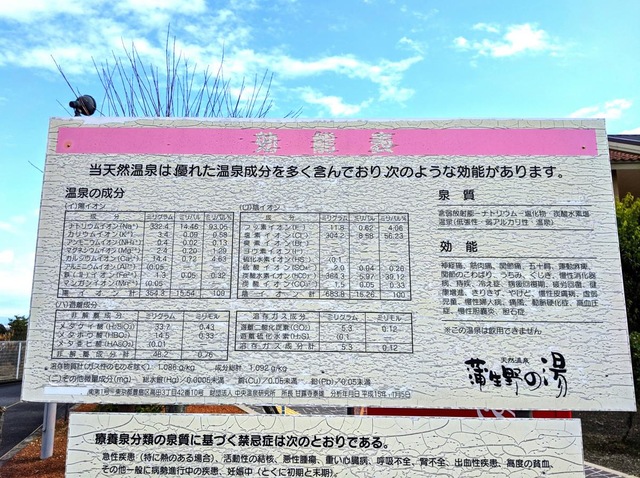 効能表
当天然温泉は優れた温泉成分を多く含んでおり次のような効能があります。
温泉の成分
(イ)陽イオン
成分 ミリグラム ミリバル ミリバル%
ナトリウムイオン(Na⁺) 332.4 14.46 93.05
カリウムイオン(K⁺) 3.4 0.09 0.58
アンモニウムイオン(NH₄⁺) 0.4 0.02 0.13
マグネシウムイオン(Mg²⁺) 2.4 0.20 1.29
カルシウムイオン(Ca²⁺) 14.4 0.72 4.63
アルミニウムイオン(Al³⁺) <0.05
マンガンイオン(Mn²⁺) <0.05
(ロ)陰イオン
成分 ミリグラム ミリバル ミリバル%
フッ素イオン(F⁻) 11.8 0.62 4.06
塩素イオン(Cl⁻) 304.2 8.58 56.23
(ハ)遊離成分
非解離成分 ミリグラム ミリモル
メタケイ酸(H₂SiO₃) 33.7 0.43
メタホウ酸(HBO₂) 14.5 0.33
メタ亜ヒ酸(HAsO₂) <0.01
非解離成分計 48.2 0.76
溶存ガス成分 ミリグラム ミリモル
遊離二酸化炭素(CO₂) 5.3 0.12
遊離硫化水素(H₂S) <0.1
溶存ガス成分計 5.3 0.12
溶存物質計(ガス性のものを除く) 1.086 g/kg 成分総計 1.092 g/kg
(ニ)その他微量成分(mg) 総水銀(Hg) 0.0005未満 銅(Cu) 0.05未満 鉛(Pb) 0.05未満
泉質
温泉(低張性・弱アルカリ性・温泉)
効能
神経痛、筋肉痛、関節痛、五十肩、運動麻痺、
関節のこわばり、うちみ、くじき、慢性消化器
病、痔疾、冷え症、病後回復期、疲労回復、健
康増進、きりきず、やけど、慢性皮膚病、虚弱
児童、慢性婦人病、痛風、動脈硬化症、高血圧
症、慢性胆嚢炎、胆石症
※この温泉は飲用できません
天然温泉
蒲生野の湯
療養泉分類の泉質に基づく禁忌症は次のとおりである。
急性疾患(特に熱のある場合)、活動性の結核、悪性腫瘍、重い心臓病、呼吸不全、腎不全、出血性疾患、高度の貧血、
その他一般に病勢進行中の疾患、妊娠中(とくに初期と末期)。